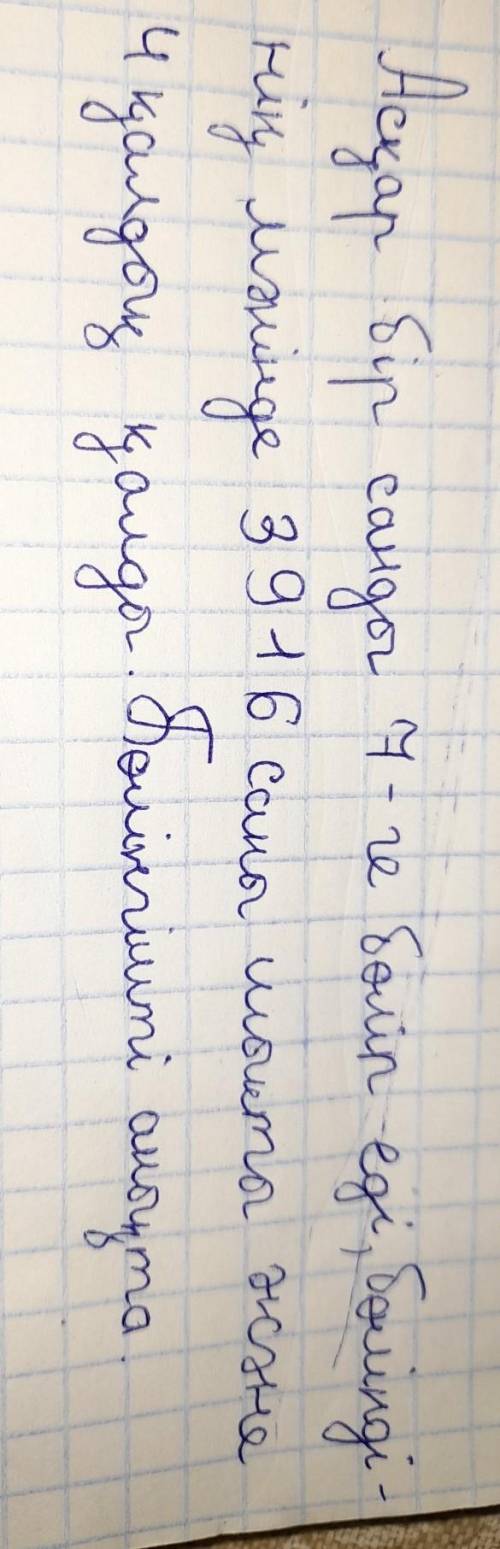 Асқар бір санды 7-ге бөліп еді, бөлінді-
нің мәнінде 3916 саны шықты және
4 қалдық қалды. Бөлінгішті анықта.